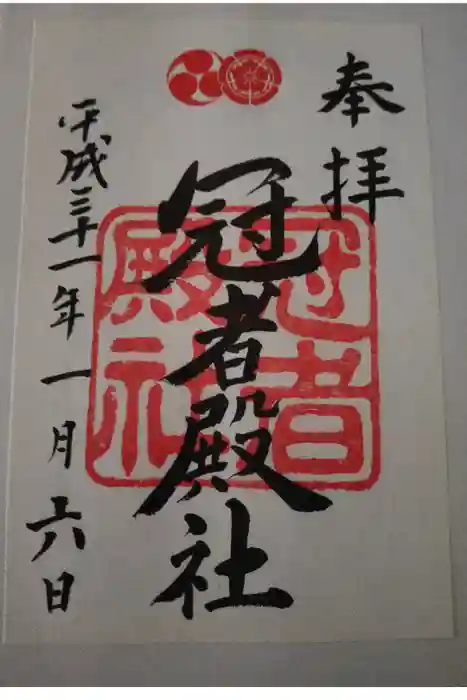 奉拝
冠者殿社
平成三十一年一月六日
冠者
殿社